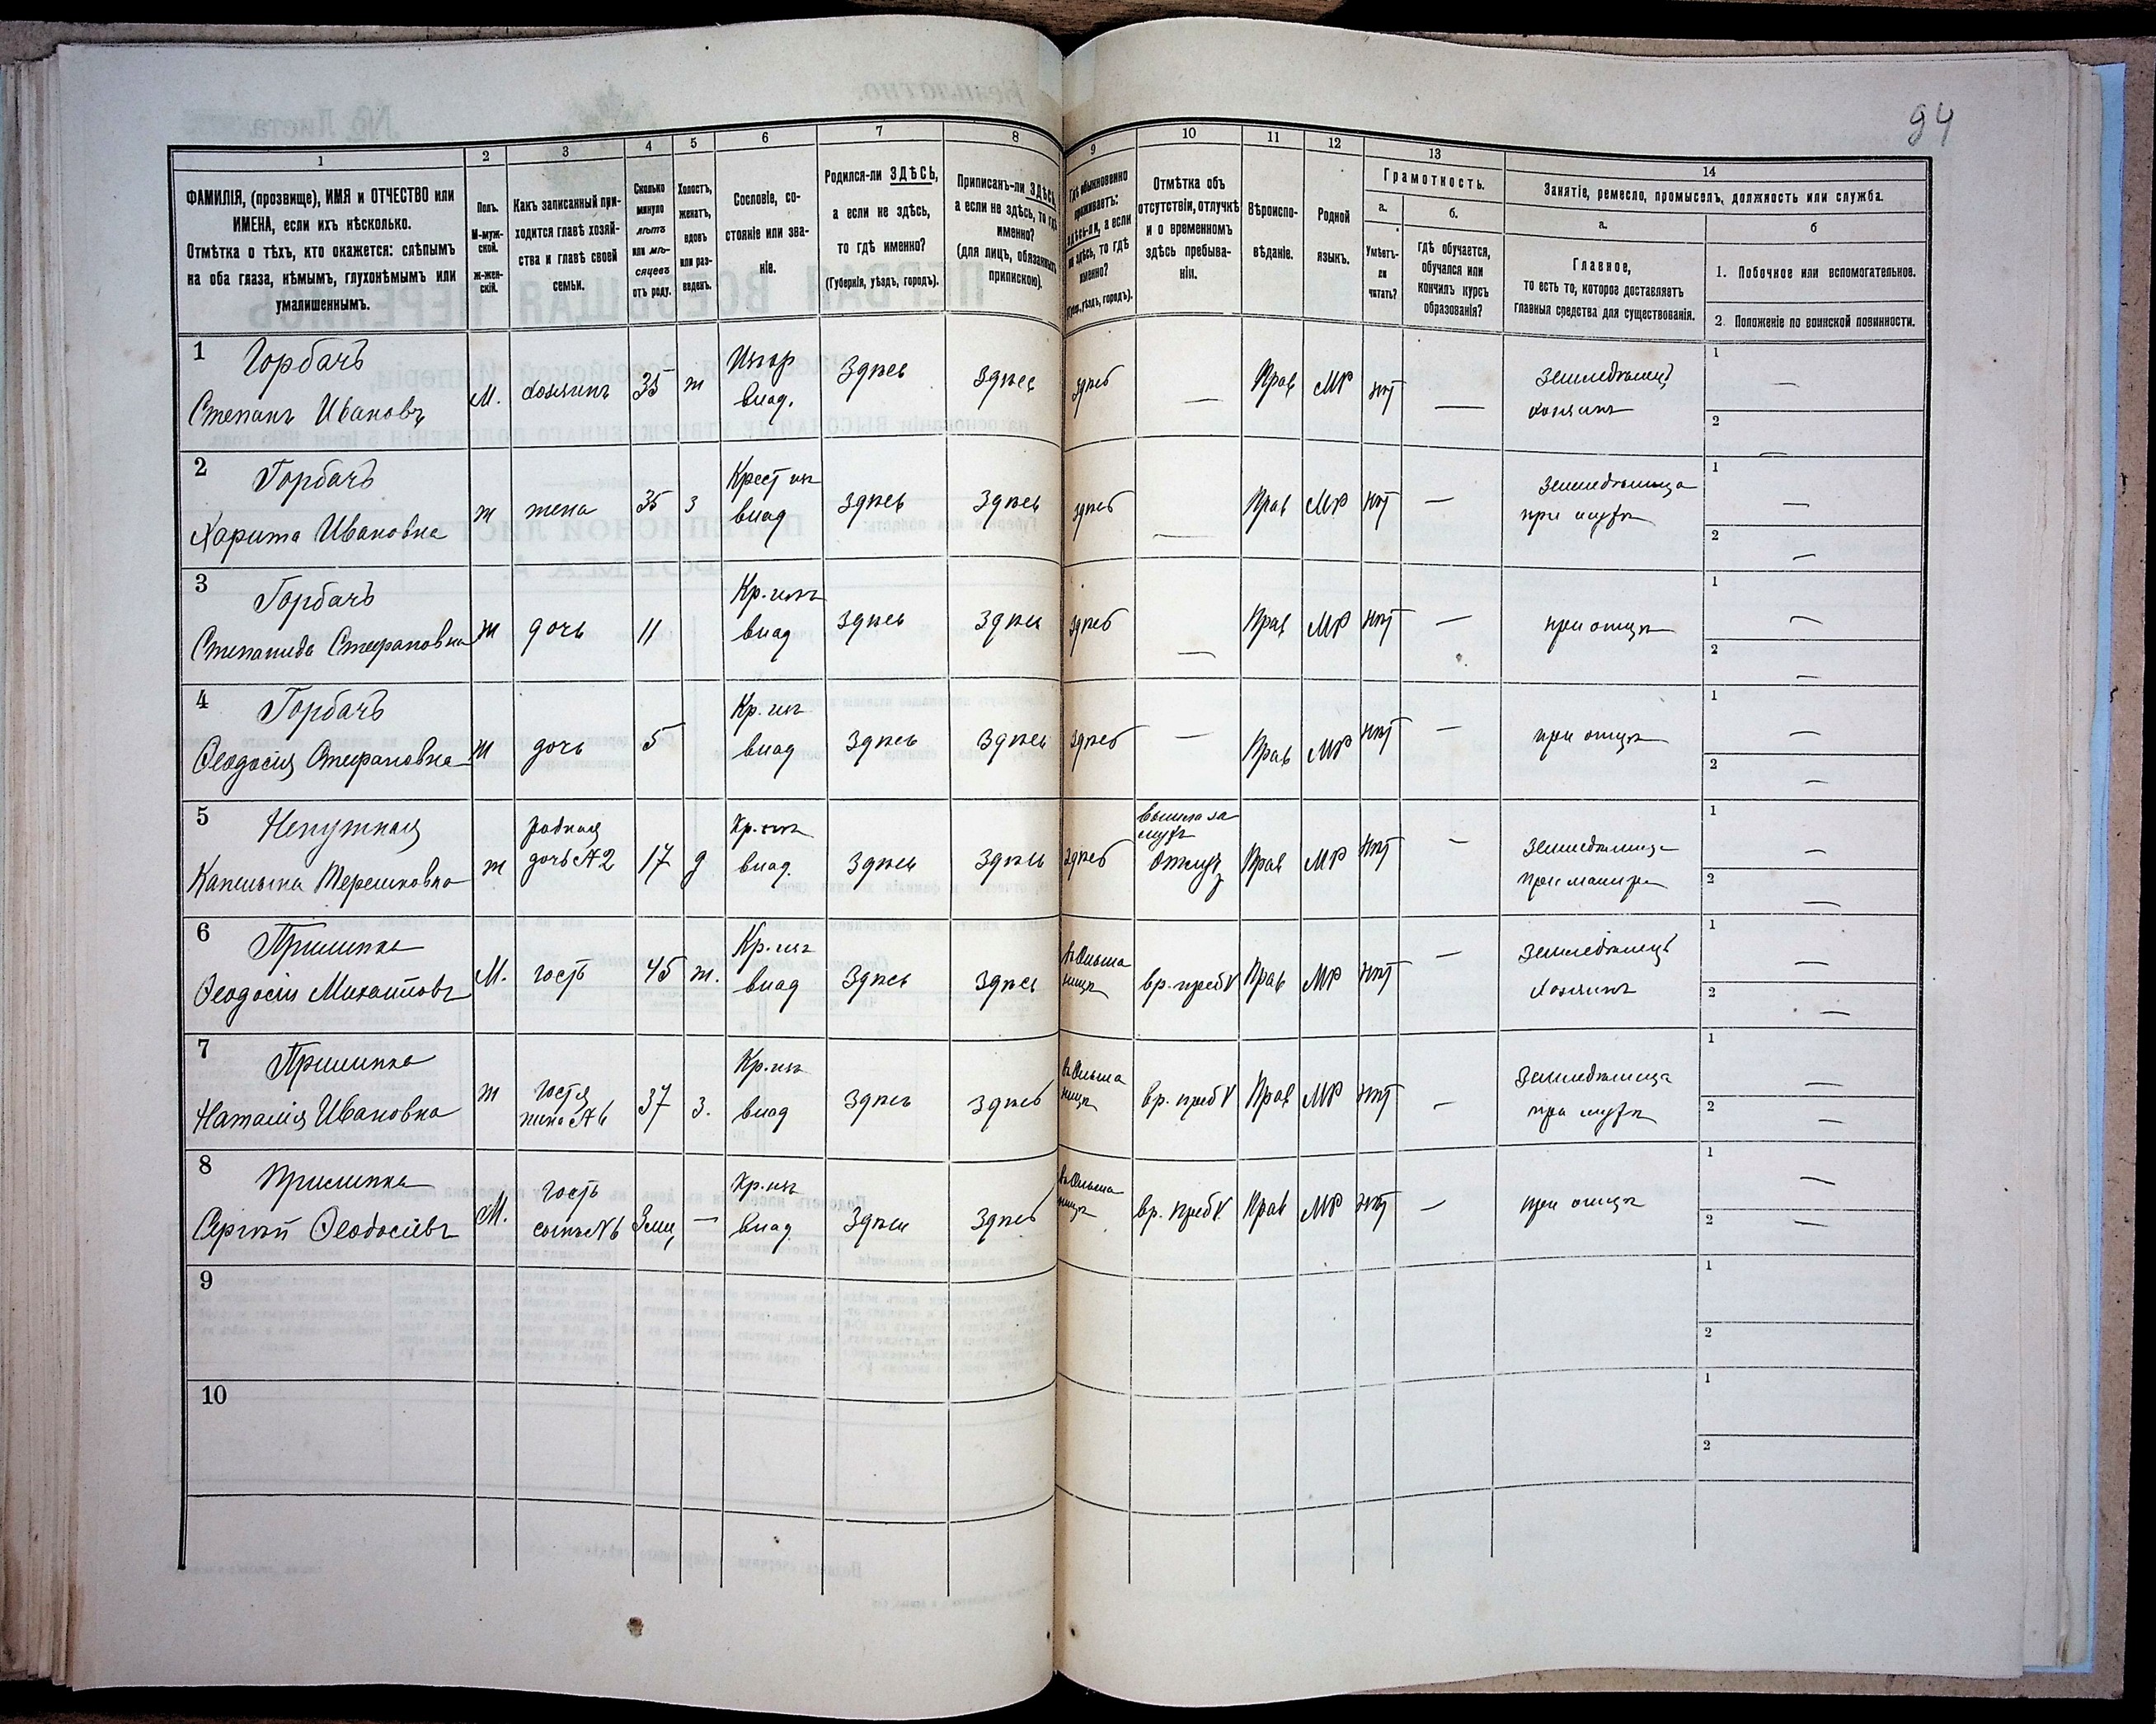 94
1
2
3
4
5
6
7
8
9
10
11
12
13
14
ФАМИЛІЯ, (прозвище), ИМЯ и ОТЧЕСТВО или
ИМЕНА, если ихъ нѣсколько.
Отмѣтка о тѣхъ, кто окажется: слѣпымъ
на оба глаза, нѣмымъ, глухонѣмымъ или
умалишеннымъ.
Полъ.
М-муж-
ской.
ж-жен-
скій.
Какъ записанный при-
ходится главѣ хозяй-
ства и главѣ своей
семьи.
Сколько
минуло
лѣтъ
или мѣ-
сяцевъ
отъ роду.
Холостъ,
женатъ,
вдовъ
или раз-
веденъ.
Сословіе, со-
стояніе или зва-
ніе.
Родился-ли ЗДѢСЬ,
а если не здѣсь,
то гдѣ именно?
(Губернія, уѣздъ, городъ).
Приписанъ-ли ЗДѢСЬ,
а если не здѣсь, то гдѣ
именно?
(для лицъ, обязанныхъ
припискою).
Гдѣ обыкновенно
проживаетъ:
здѣсь-ли, а если
не здѣсь, то гдѣ
именно?
(Губ., уѣздъ, городъ).
Отмѣтка объ
отсутствіи, отлучкѣ
и о временномъ
здѣсь пребыва-
ніи.
Вѣроиспо-
вѣданіе.
Родной
языкъ.
Грамотность.
а.
Умѣетъ-
ли
читать?
б.
гдѣ обучается,
обучался или
кончилъ курсъ
образованія?
Занятіе, ремесло, промыселъ, должность или служба.
а.
Главное,
то есть то, которое доставляетъ
главныя средства для существованія.
б
1. Побочное или вспомогательное.
2. Положеніе по воинской повинности.
1 Горбачъ
Степанъ Ивановъ
М. хозяинъ 35 ж
влад.
Здѣсь Здѣсь здѣсь — Прав МР нѣт —
Земледѣлецъ
хозяинъ
1 —
2 —
2 Горбачъ
Харита Ивановна
ж жена 35 з
Крест
влад
Здѣсь Здѣсь здѣсь — Прав МР нѣт —
Земледѣлица
при мужѣ
1 —
2 —
3 Горбачъ
Степанида Стефановна
ж дочь 11
Кр.
влад
Здѣсь Здѣсь здѣсь — Прав МР нѣт —
при отцѣ
1 —
2 —
4 Горбачъ
Ѳеодосія Стефановна
ж дочь 5
Кр.
влад
Здѣсь Здѣсь здѣсь — Прав МР нѣт —
при отцѣ
1 —
2 —
5
Терешковна
ж
родная
дочь №2
17 д
Кр.
влад.
Здѣсь Здѣсь здѣсь
вышла за
мужъ
Прав МР нѣт —
Земледѣлица
при матери
1 —
2 —
6 Прилипка
Ѳеодосій Михайловъ
М. гость 45 ж.
Кр.
влад
Здѣсь Здѣсь
въ Ольша
ницѣ
вр. преб Прав МР нѣт —
Земледѣлецъ
хозяинъ
1 —
2 —
7 Прилипка
Наталія Ивановна
ж
гостя
жена №6
37 з.
Кр.
влад
Здѣсь Здѣсь
въ Ольша
ницѣ
вр. преб Прав МР нѣт —
Земледѣлица
при мужѣ
1 —
2 —
8 Прилипка
Сергѣй Ѳеодосіевъ
М.
гость
сынъ №6
3 мц —
Кр.
влад
Здѣсь Здѣсь
въ Ольша
ницѣ
вр. преб Прав МР нѣт —
при отцѣ
1 —
2 —
9
1
2
10
1
2